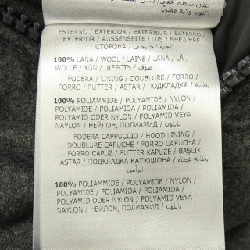 ESTERNO / EXTERIOR / EXTERIEUR / EXTERNO
EXTERIOR / AUSSENSEITE / DIS /
СТОРОНА /
100% LANA / WOOL / LAINE / LANA / LÃ
WOLLE / YÜN / ШЕРСТЬ / صوف
FODERA / LINING / DOUBLURE / FORRO
FORRO / FUTTER / ASTAR / ПОДКЛАДКА /
100% POLIAMMIDE / POLYAMIDE / NYLON /
POLYAMIDE / POLIAMIDA / POLIAMIDA /
POLYAMID ODER NYLON / POLYAMID VEYA
NAYLON / НЕЙЛОН, ПОЛИАМИД /
FODERA CAPPUCCIO / HOOD LINING /
DOUBLURE CAPUCHE / FORRO CAPUCHA /
FORRO CAPUZ / FUTTER KAPUZE / BAŞLIK
ASTAR / ПОДКЛАДКА КАПЮШОНА / بطانة
100% POLIAMMIDE / POLYAMIDE / NYLON /
POLYAMIDE / POLIAMIDA / POLIAMIDA /
POLYAMID ODER NYLON / POLYAMID VEYA
NAYLON / НЕЙЛОН, ПОЛИАМИД /